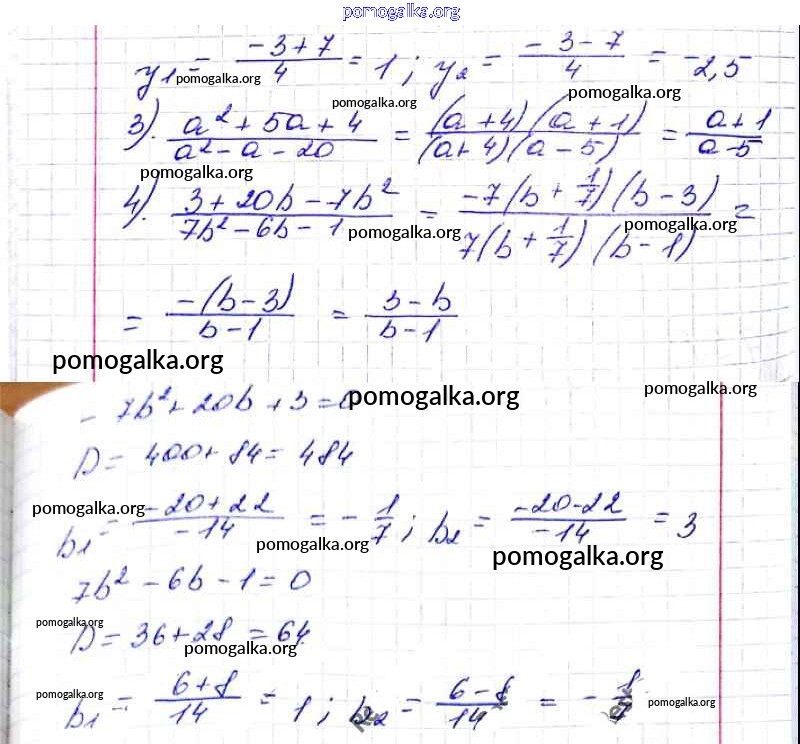 pomogalka.org
y₁ = (-3+7)/4 = 1; y₂ = (-3-7)/4 = -2,5
pomogalka.org
pomogalka.org
pomogalka.org
3). (a² + 5a + 4)/(a² - a - 20) = ((a+4)(a+1))/((a+4)(a-5)) = (a+1)/(a-5)
pomogalka.org
4). (3+20b-7b²)/(7b²-6b-1) = (-7(b+1/7)(b-3))/(7(b+1/7)(b-1)) =
pomogalka.org
pomogalka.org
= (-(b-3))/(b-1) = (3-b)/(b-1)
pomogalka.org
pomogalka.org
pomogalka.org
-7b²+20b+3=0
D = 400+84 = 484
pomogalka.org
b₁ = (-20+22)/(-14) = -1/7; b₂ = (-20-22)/(-14) = 3
pomogalka.org
pomogalka.org
7b²-6b-1=0
pomogalka.org
D = 36+28 = 64
pomogalka.org
b₁ = (6+8)/14 = 1; b₂ = (6-8)/14 = -1/7
pomogalka.org
pomogalka.org